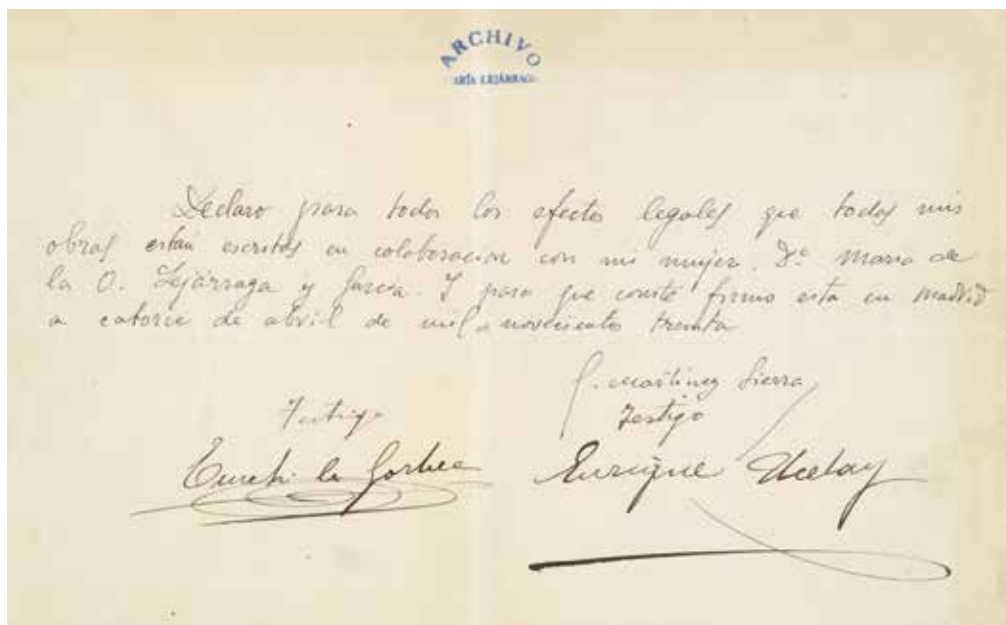 ARCHIVO
MARÍA LEJÁRRAGA
Declaro para todos los efectos legales que todas mis
obras están escritas en colaboracion con mi mujer. Dª Maria de
la O. Lejárraga y García. Y para que conste firmo esta en Madrid
a catorce de abril de mil novecientos treinta
G. Martinez Sierra
Testigo
Testigo
Enrique Ucelay